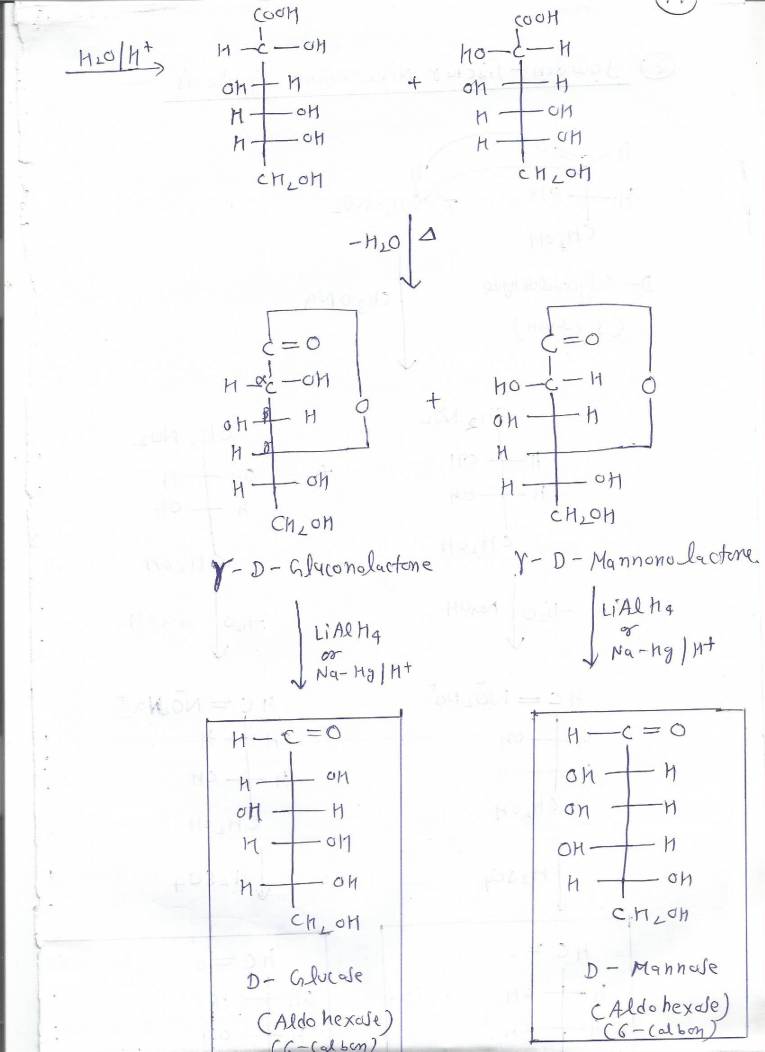 H2O/H+
COOH
H - C - OH
OH H
H OH
H OH
CH2OH
+
COOH
HO - C - H
OH H
H OH
H OH
CH2OH
-H2O Δ
C = O
H - αC - OH
OH β H O
H γ
H OH
CH2OH
+
C = O
HO - C - H O
OH H
H
H OH
CH2OH
γ - D - Gluconolactone
γ - D - Mannonolactone
LiAlH4
or
Na-Hg/H+
LiAlH4
or
Na-Hg/H+
H - C = O
H OH
OH H
H OH
H OH
CH2OH
D - Glucase
(Aldohexase)
(6-Calbon)
H - C = O
OH H
OH H
OH H
H OH
CH2OH
D - Mannase
(Aldohexase)
(6-Calbon)